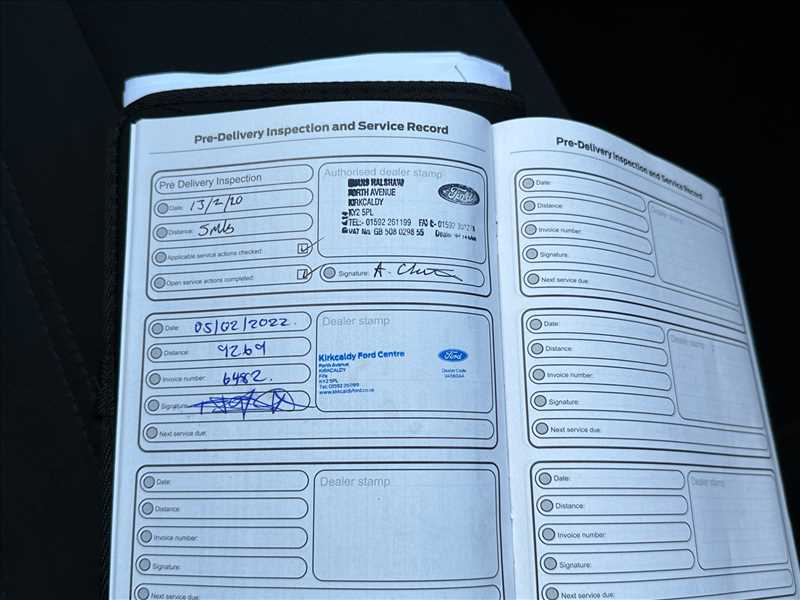 Pre-Delivery Inspection and Service Record
Pre Delivery Inspection
Date: 13/2/20
Distance: 5 Mls
Applicable service actions checked:
Open service actions completed:
Authorised dealer stamp
HALSHAW
FORTH AVENUE
KIRKCALDY
KY2 5PL
TEL:- 01592 261199
VAT No. GB 508 0298 55
Ford
Signature:
Date: 05/02/2022.
Distance: 9269
Invoice number: 6482.
Signature:
Next service due:
Dealer stamp
Kirkcaldy Ford Centre
Forth Avenue
KIRKCALDY
Fife
KY2 5PL
Tel: 01592 261199
www.kirkcaldyford.co.uk
Ford
Dealer Code
Date:
Distance:
Invoice number:
Signature:
Next service due:
Dealer stamp
Pre-Delivery Inspection and Service Record
Date:
Distance:
Invoice number:
Signature:
Next service due:
Dealer stamp
Date:
Distance:
Invoice number:
Signature:
Next service due:
Dealer stamp
Date:
Distance:
Invoice number:
Signature:
Next service due:
Dealer stamp